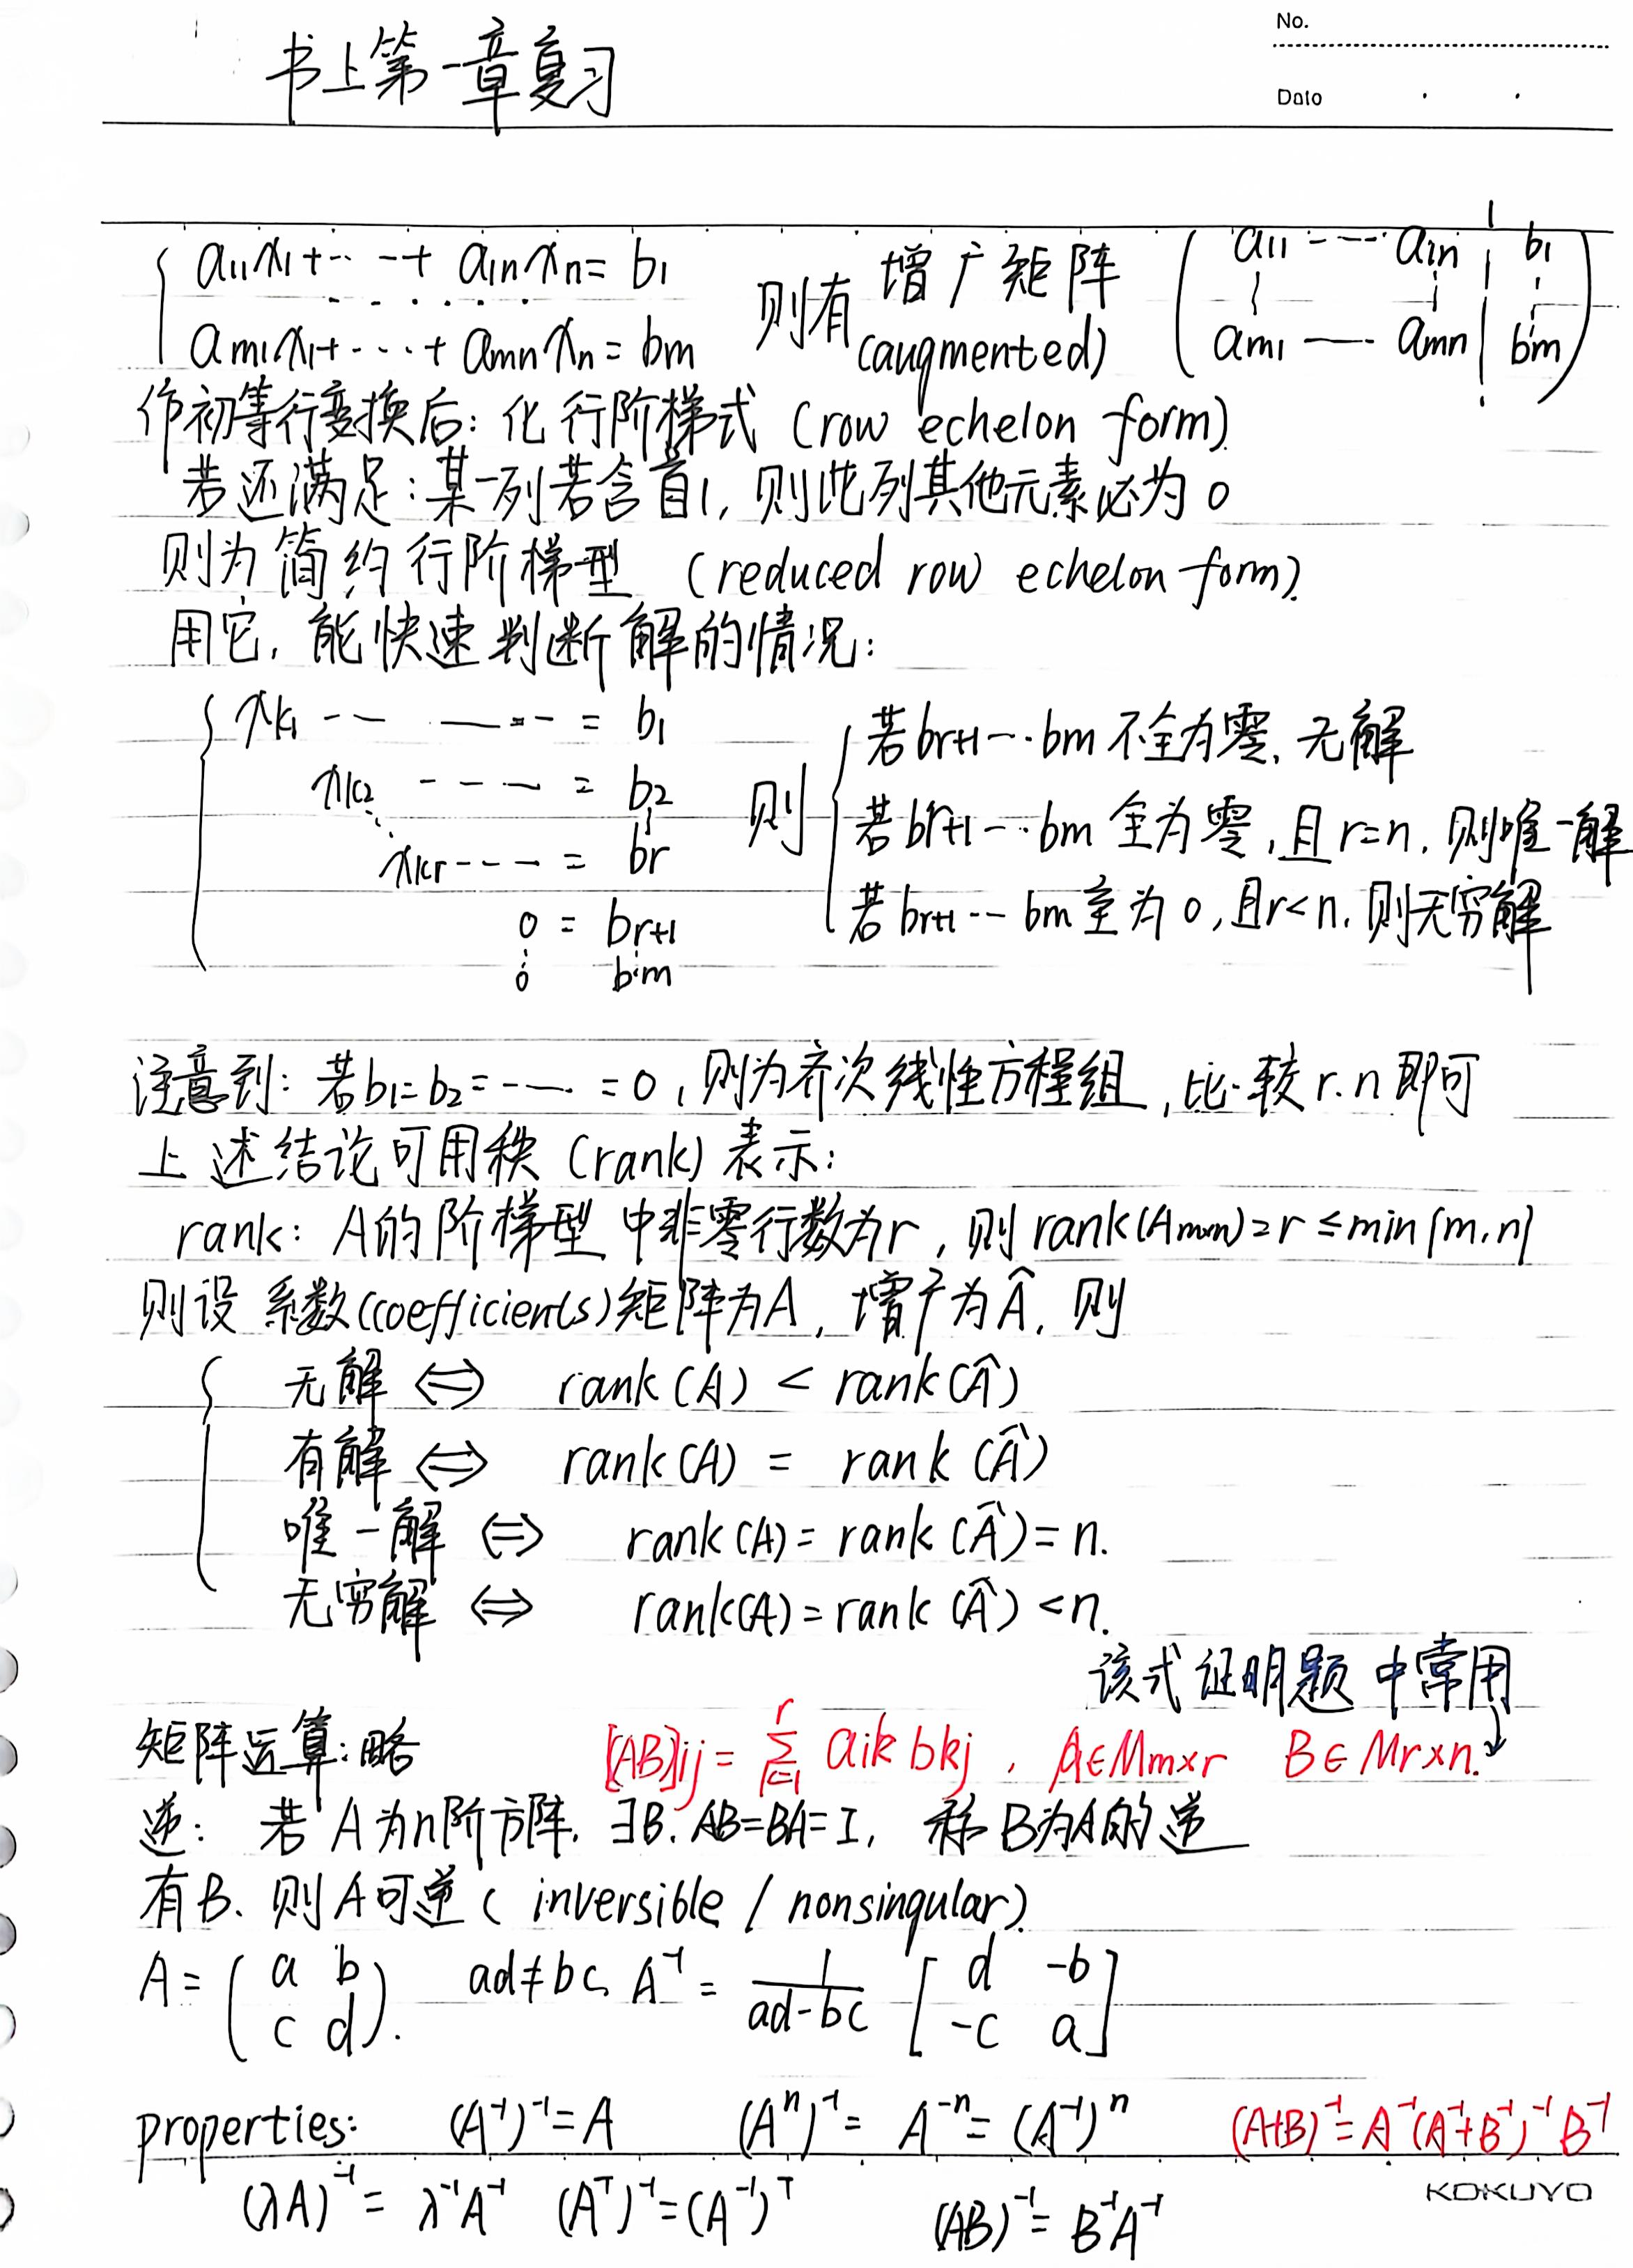 No.
Date
书上第一章复习
{ a₁₁x₁+‥-+ a₁ₙxₙ= b₁
‥‥‥
aₘ₁x₁+-‥+ aₘₙxₙ = bₘ
则有 增广矩阵
(augmented)
( a₁₁ --- a₁ₙ | b₁
⋮ ⋮ | ⋮
aₘ₁ —— aₘₙ | bₘ )
作初等行变换后: 化行阶梯式 (row echelon form).
若还满足: 某一列若含首1, 则此列其他元素必为0
则为简约行阶梯型 (reduced row echelon form).
用它, 能快速判断解的情况:
{ xk₁ -- ---- = b₁
xk₂ ---- = b₂
xkᵣ---- = bᵣ
0 = bᵣ₊₁
0 bₘ
则 { 若bᵣ₊₁-‥bₘ 不全为零, 无解
若bᵣ₊₁-‥bₘ 全为零, 且r=n, 则唯一解
若bᵣ₊₁--bₘ 全为0, 且r<n, 则无穷解
注意到: 若b₁=b₂=-‥- =0, 则为齐次线性方程组, 比较r.n即可
上述结论可用秩 (rank) 表示:
rank: A的阶梯型中非零行数为r, 则rank(Aₘₓₙ)=r ≤min{m,n}
则设系数(coefficients)矩阵为A, 增广为Â, 则
{ 无解 ⇔ rank(A) < rank(Â)
有解 ⇔ rank(A) = rank(Â)
唯一解 ⇔ rank(A)=rank(Â)=n.
无穷解 ⇔ rank(A)=rank(Â)<n.
该式证明题中常用
矩阵运算: 略 [AB]ij = r∑k=1 aik bkj , A∈Mm×r B∈Mr×n.
逆: 若A为n阶方阵, ∃B, AB=BA=I, 称B为A的逆
有B, 则A可逆 ( inversible / nonsingular).
A= ( a b
c d ). ad≠bc, A⁻¹ = 1/(ad-bc) [ d -b
-c a ]
properties: (A⁻¹)⁻¹=A (Aⁿ)⁻¹= A⁻ⁿ= (A⁻¹)ⁿ (A+B)⁻¹=A⁻¹(A⁻¹+B⁻¹)⁻¹B⁻¹
(λA)⁻¹= λ⁻¹A⁻¹ (Aᵀ)⁻¹=(A⁻¹)ᵀ (AB)⁻¹= B⁻¹A⁻¹
KOKUYO